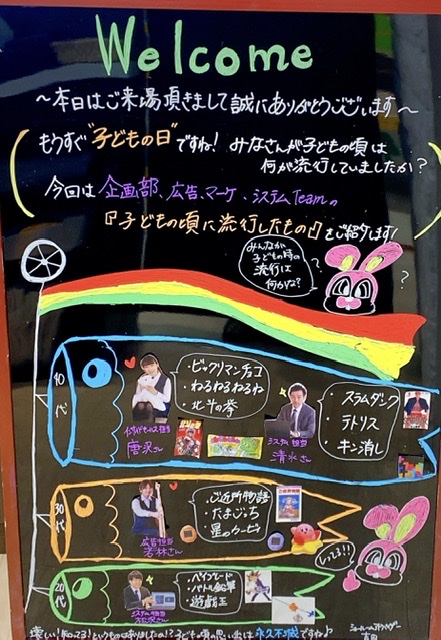 Welcome
～本日はご来場頂きまして誠にありがとうございます～
もうすぐ"子どもの日"ですね！ みなさんが子どもの頃は
何が流行していましたか？
今回は 企画部、広告、マーケ、システムTeamの
『子どもの頃に流行したもの』をご紹介します！
みんなが
子どもの時の
流行は
何かな？
40代
・ビックリマンチョコ
・ねるねるねるね
・北斗の拳
唐沢さん
・スラムダンク
・テトリス
・キン消し
システム担当
清水さん
30代
・ご近所物語
・たまごっち
・星のカービィ
広告担当
若林さん
しってる！！
20代
・ベイブレード
・バトル鉛筆
・遊戯王
システム担当
懐しい！知ってる！というものはありましたか？子どもの頃の思い出は永久不滅ですね♪